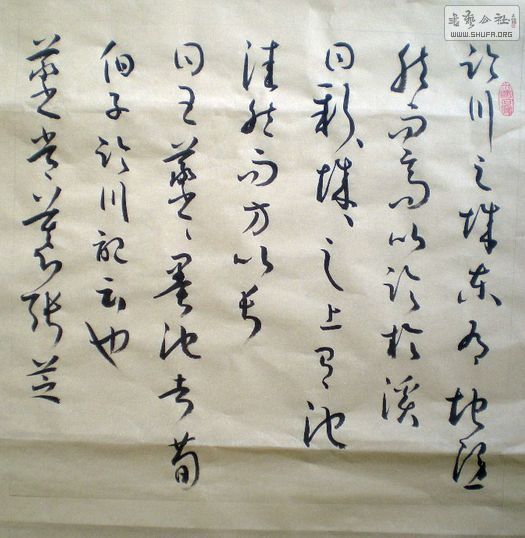 书艺公社
WWW.SHUFA.ORG
临川之城东有地隐
然而高以临於溪
曰新、城、之上有池
洼然而方以长
曰王羲之、墨池者荀
伯子临川记云也
羲之尝慕张芝